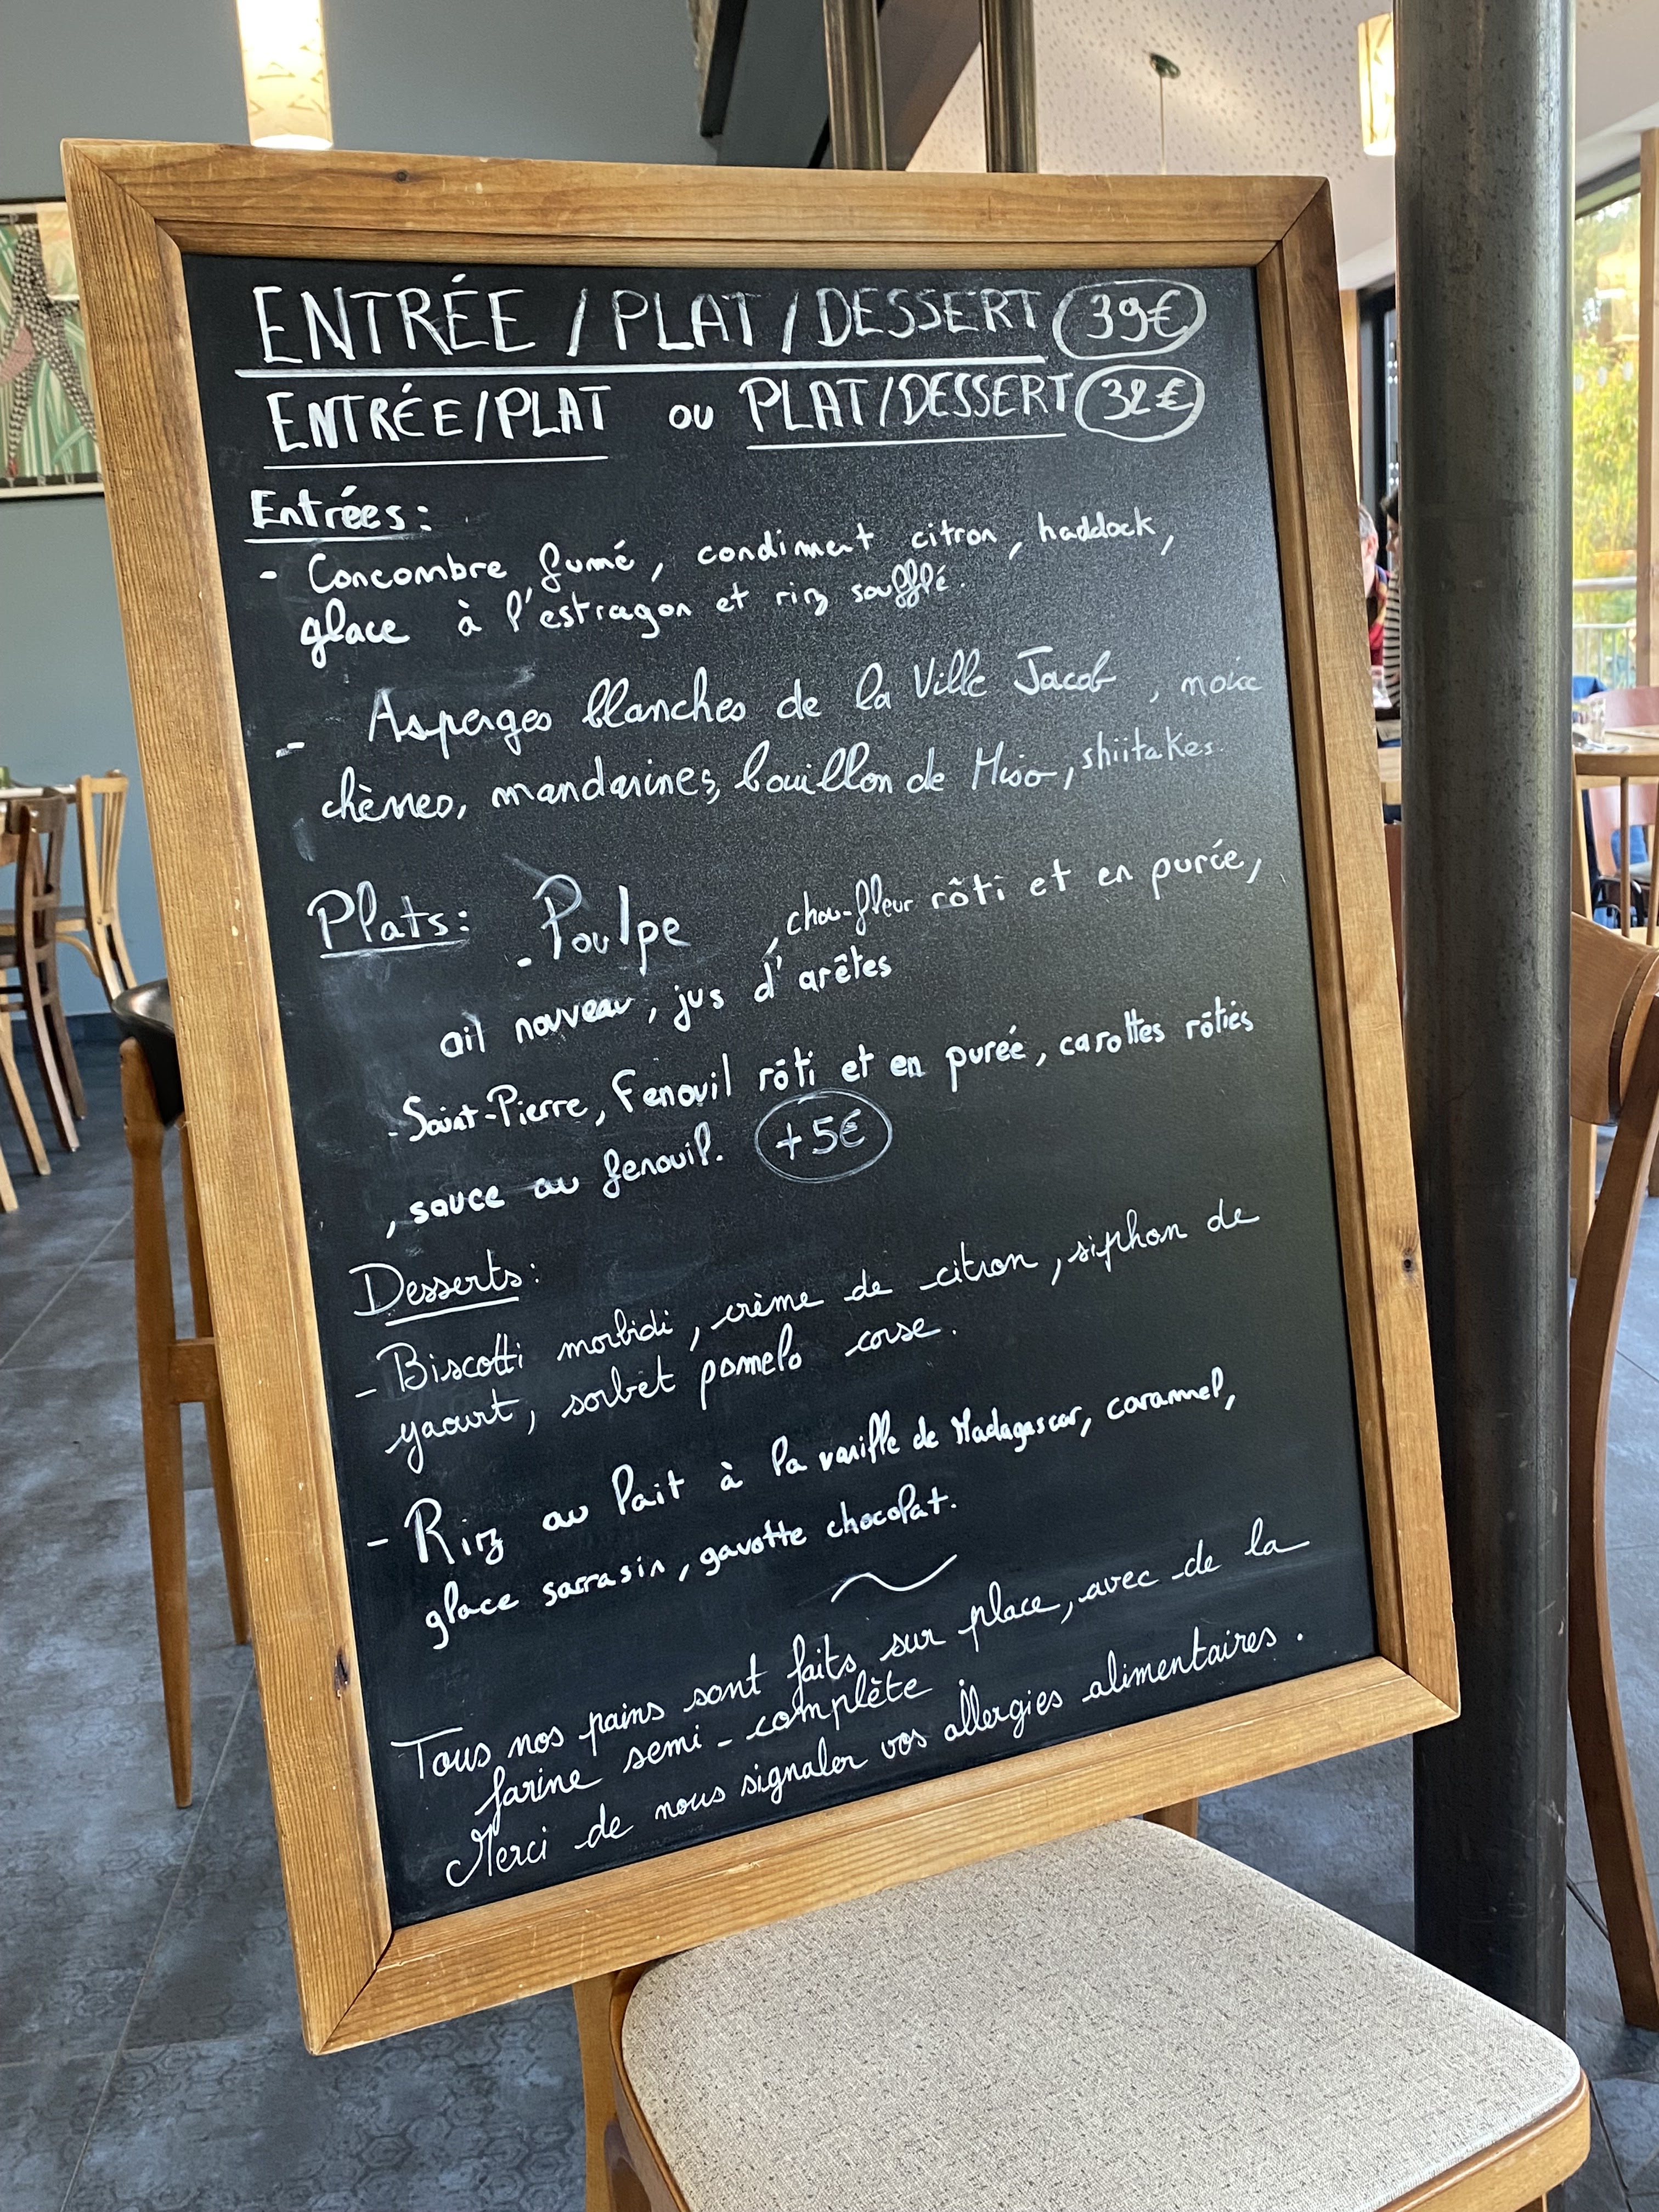 ENTRÉE / PLAT / DESSERT 39€
ENTRÉE/PLAT ou PLAT/DESSERT 32€
Entrées :
- Concombre fumé, condiment citron, haddock,
glace à l'estragon et riz soufflé.
- Asperges blanches de la Ville Jacob,
chènes, mandarines, bouillon de Miso, shiitakes.
Plats : - Poulpe, chou-fleur rôti et en purée,
ail nouveau, jus d'arêtes
- Saint-Pierre, Fenouil rôti et en purée, carottes rôties
, sauce au fenouil. +5€
Desserts :
- Biscotti morbidi, crème de citron, siphon de
yaourt, sorbet pomelo corse.
- Riz au lait à la vanille de Madagascar, caramel,
glace sarrasin, gavotte chocolat.
Tous nos pains sont faits sur place, avec de la
farine semi-complète !
Merci de nous signaler vos allergies alimentaires.